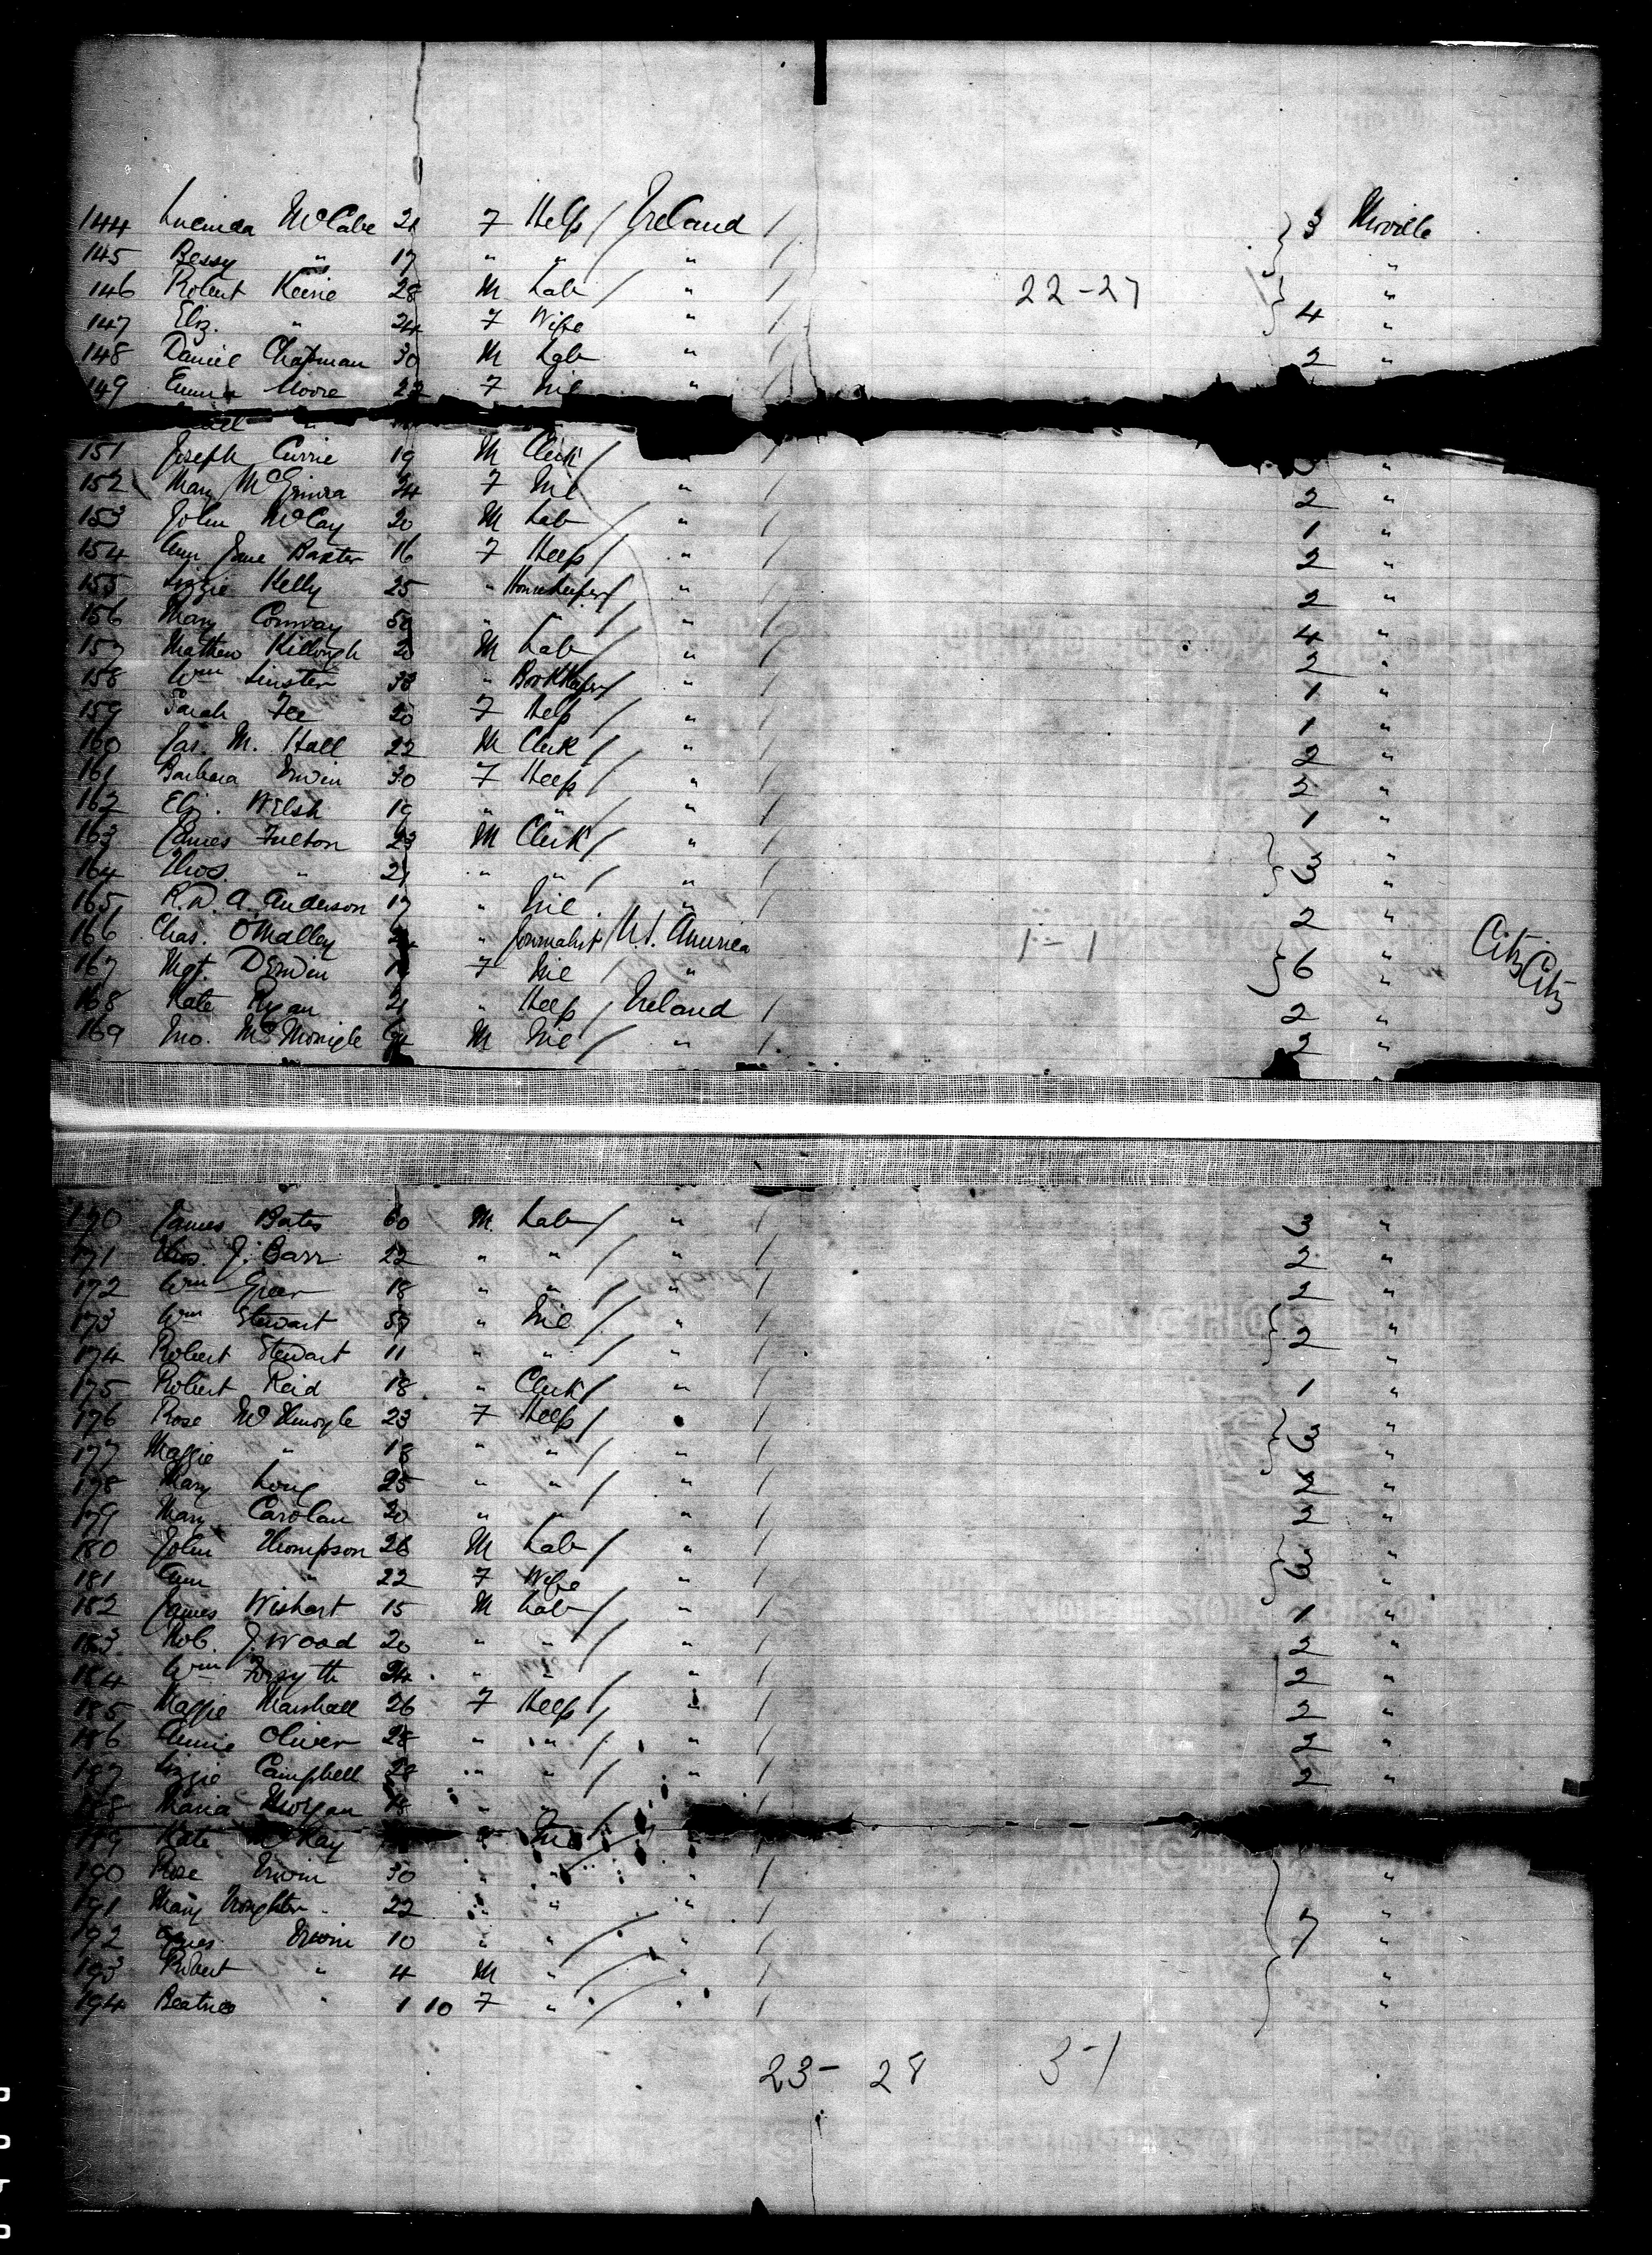 144 Lucinda McCabe 21 7 Help / Ireland / 3 Moville
145 Bessy " 17 " " / " / "
146 Robert Keenie 28 M Lab / " / 22-27 "
147 Eliz. " 24 7 Wife " / 4 "
148 Daniel Chapman 30 M Lab " / 2 "
149 Emma Moore 22 7 Nil "
151 Joseph Currie 19 M Clerk / " / "
152 Mary 24 7 Nil / " / 2 "
153 John McCay 20 M Lab / " / 1 "
154 Ann Jane Baxter 16 7 Help / " / 2 "
155 Lizzie Kelly 25 " Housekeeper / " / 2 "
156 Mary Conway " " / " / 4 "
157 Mathew Killough 20 M Lab / " / 2 "
158 Wm Linster 38 " Bookkeeper / " / 1 "
159 Sarah Fee 20 7 Help / " / 1 "
160 Jas. M. Hall 22 M Clerk / " / 2 "
161 Barbara Erwin 30 7 Help / " / 2 "
162 Eliz. Welsh 19 " " / " / 1 "
163 James Fulton 23 M Clerk / " / "
164 Thos. " 21 " " / " / 3 "
165 R. W. A. Anderson 17 " Nil " / 2 "
166 Chas. O'Malley " Journalist / U.S. America 1-1 " Citz
167 Mgt. Dewin 7 Nil / " 6 " Citz
168 Kate Ryan 21 " Help / Ireland / 2 "
169 Jno. McMonigle M Nil / " / 2 "
170 James Bates 60 M. Lab / " / 3 "
171 Thos. J. Barr 22 " " / " / 2 "
172 Wm Greer 18 " " / " / 2 "
173 Wm Stewart 57 " Nil / " / "
174 Robert Stewart 11 " " / " / 2 "
175 Robert Reid 18 " Clerk / " / 1 "
176 Rose 23 7 Help / " / "
177 Maggie " 18 " " / " / 3 "
178 Mary Long 25 " " / " / 2 "
179 Mary Carolan 20 " " / " / 2 "
180 John Thompson 26 M Lab / " / "
181 Ann " 22 7 Wife " / "
182 James Wishart 15 M Lab / " / 1 "
183 Rob. J. Wood 20 " " / " / 2 "
184 Wm Forsyth 24 " " / " / 2 "
185 Maggie Marshall 26 7 Help / " / 2 "
186 Annie Oliver 28 " " / " / 2 "
187 Lizzie Campbell 28 " " / " / 2 "
188 Maria Morgan 18 " " / /
189 Kate McKay " Nil / /
190 Rose Erwin 30 " " / "
191 Mary 22 " " / " / "
192 Agnes Erwin 10 " " / " / 7 "
193 Robert " 4 M " / " / "
194 Beatrice " 1 10 7 " / " / "
23-28 3-1